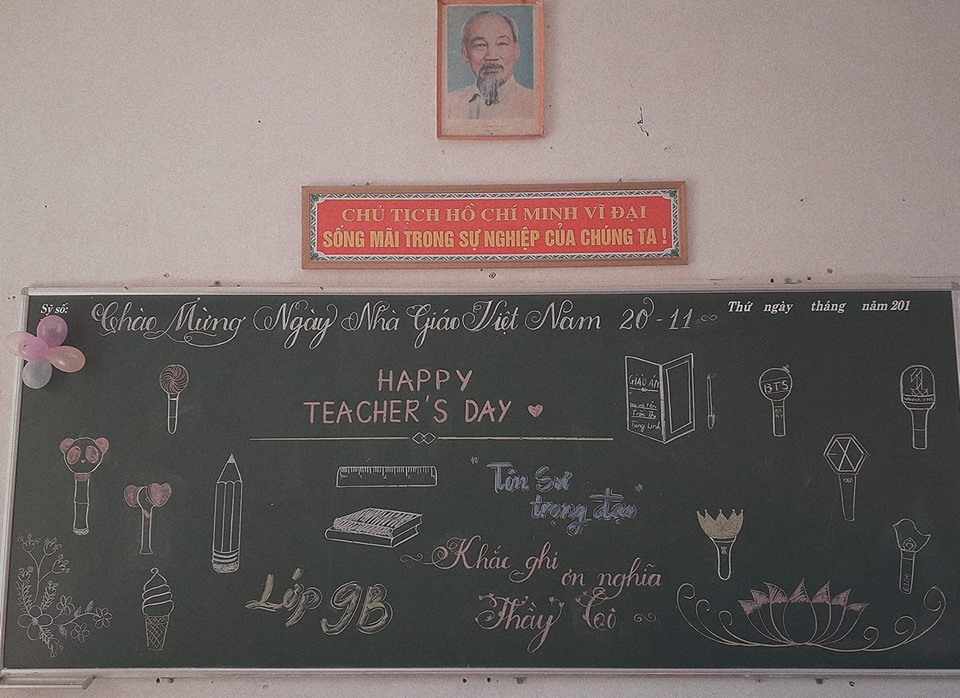 CHỦ TỊCH HỒ CHÍ MINH VĨ ĐẠI
SỐNG MÃI TRONG SỰ NGHIỆP CỦA CHÚNG TA !
Sỹ số:
Chào Mừng Ngày Nhà Giáo Việt Nam 20-11
Thứ ngày tháng năm 201
HAPPY
TEACHER'S DAY
GIÁO ÁN
BTS
EXO
"Tôn Sư
trọng đạo"
Khắc ghi
ơn nghĩa
Thầy Cô
Lớp 9B